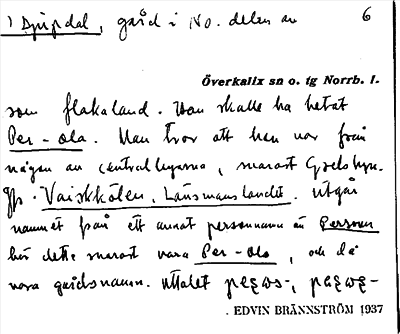 ) Djupdal, gård i No. delen av 6
Överkalix sn o. tg Norrb. l.
som flakaland. Han skulle ha hetat
Per-Ola. Man tror att han var från
någon av centralbyarna, snarast Grelsbyn.
Jfr. Vaiskkölen, Länsmanslandet. Utgår
namnet från ett annat personnamn än Persson
bör detta snarast vara Per-Ola, och då
vara gårdsnamn. Uttalet
. EDVIN BRÄNNSTRÖM 1937